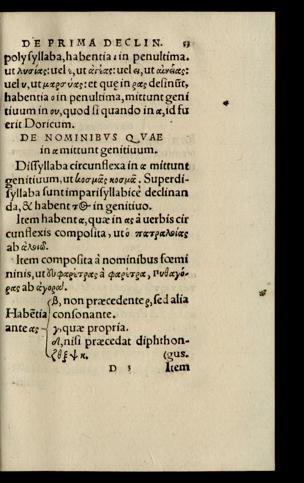 DE PRIMA DECLIN. 53
polysyllaba, habentia ι in penultima.
ut λυσίας: uel ι, ut : uel ει, ut αἰνείας:
uel υ, ut μαρσύας: et quę in ρας desinūt,
habentia ο in penultima, mittunt geni
tiuum in ου, quod si quando in α, id fu
erit Doricum.
DE NOMINIBVS QVAE
in α mittunt genitiuum.
Dissyllaba circunflexa in α mittunt
genitiuum, ut κοσμᾶς κοσμᾶ. Superdi-
syllaba sunt imparisyllabicè declinan
da, & habent τος in genitiuo.
Item habent α, quæ in ας à uerbis cir
cunflexis composita, ut ὁ πατραλοίας
ab ἀλοιῶ.
Item composita à nominibus fœmi
ninis, ut à φαρέτρα, πυθαγό-
ρας ab ἀγορά.
β, non præcedente ρ, sed alia
Habētia consonante.
ante ας γ, quæ propria.
δ, nisi præcedat diphthon-
ζ θ ξ ψ κ. (gus.
D 3 Item